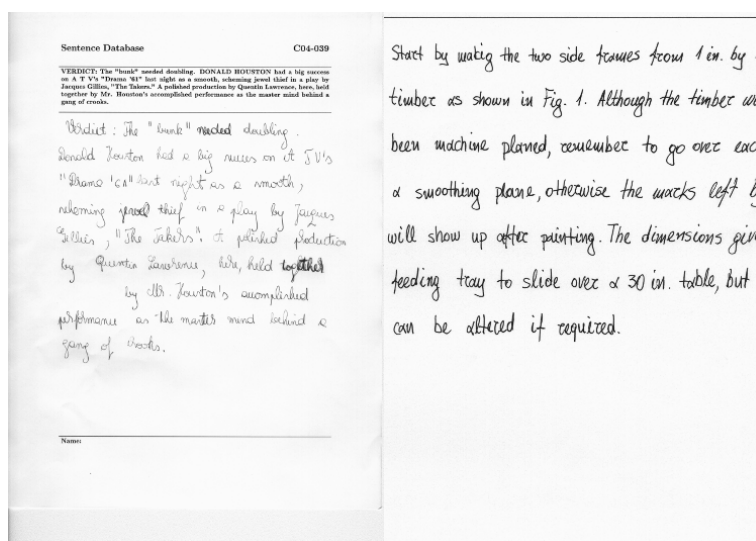 Sentence Database C04-039
VERDICT: The "bunk" needed doubling. DONALD HOUSTON had a big success
on A T V's "Drama '61" last night as a smooth, scheming jewel thief in a play by
Jacques Gillies, "The Takers." A polished production by Quentin Lawrence, here, held
together by Mr. Houston's accomplished performance as the master mind behind a
gang of crooks.
Verdict : The "bunk" needed doubling.
Donald Houston had a big succes on A TV's
"Drama '61" last night as a smooth,
scheming jewel thief in a play by Jacques
Gillies, "The Takers". A polished production
by Quentin Lawrence, here, held together
by Mr. Houston's accomplished
performance as the master mind behind a
gang of crooks.
Name:
Start by makig the two side frames from 1 in. by
timber as shown in Fig. 1. Although the timber
been machine planed, remember to go over
a smoothing plane, otherwise the marks left
will show up after painting. The dimensions
feeding tray to slide over a 30 in. table, but
can be altered if required.